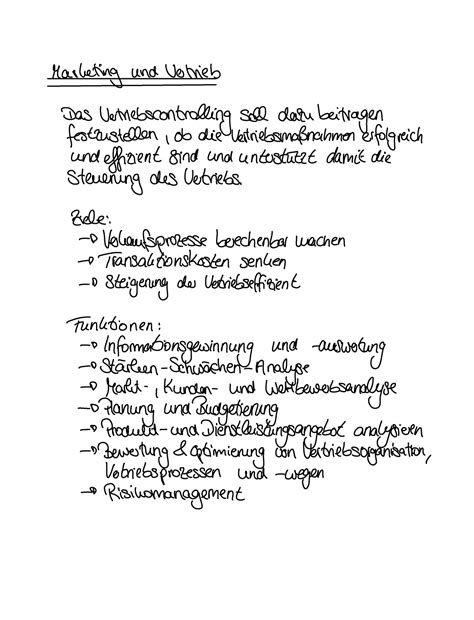 Marketing und Vertrieb
Das Vertriebscontrolling soll dazu beitragen
festzustellen, ob die Vertriebsmaßnahmen erfolgreich
und effizient sind und unterstützt damit die
Steuerung des Vertriebs.
Ziele:
→ Verkaufsprozesse berechenbar machen
→ Transaktionskosten senken
→ Steigerung der Vertriebseffizient
Funktionen:
→ Informationsgewinnung und -auswertung
→ Stärken-Schwächen-Analyse
→ Markt-, Kunden- und Wettbewerbsanalyse
→ Planung und Budgetierung
→ Produkt- und Dienstleistungsangebot analysieren
→ Bewertung & Optimierung von Vertriebsorganisation,
Vertriebsprozessen und -wegen
→ Risikomanagement